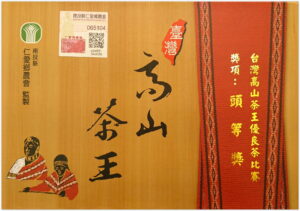 南投縣
仁愛鄉農會 監製
065104
臺灣
高山
茶王
台灣高山茶王優良茶比賽
獎項：頭等獎